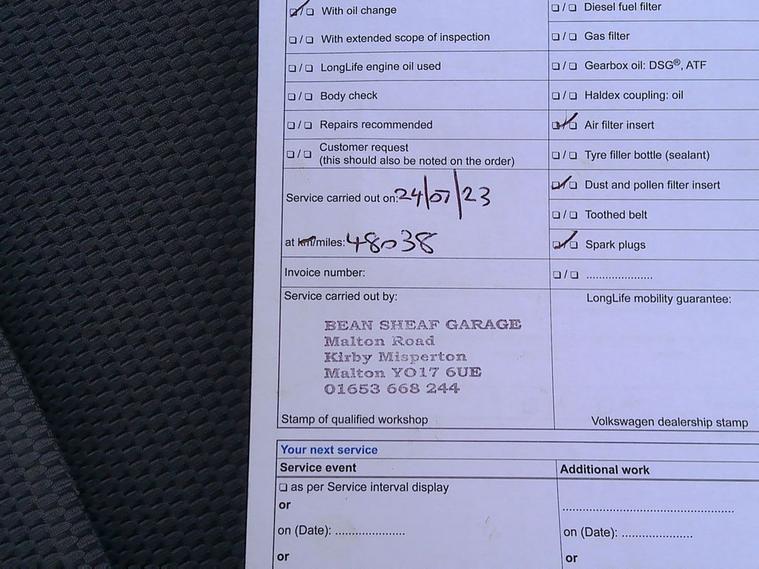 ❏/❏ With oil change
❏/❏ With extended scope of inspection
❏/❏ LongLife engine oil used
❏/❏ Body check
❏/❏ Repairs recommended
❏/❏ Customer request
(this should also be noted on the order)
Service carried out on: 24/07/23
at km/miles: 48038
Invoice number:
Service carried out by:
BEAN SHEAF GARAGE
Malton Road
Kirby Misperton
Malton YO17 6UE
01653 668 244
Stamp of qualified workshop
❏/❏ Diesel fuel filter
❏/❏ Gas filter
❏/❏ Gearbox oil: DSG®, ATF
❏/❏ Haldex coupling: oil
❏/❏ Air filter insert
❏/❏ Tyre filler bottle (sealant)
❏/❏ Dust and pollen filter insert
❏/❏ Toothed belt
❏/❏ Spark plugs
❏/❏ .....................
LongLife mobility guarantee:
Volkswagen dealership stamp
Your next service
Service event
❏ as per Service interval display
or
on (Date): ......................
or
Additional work
......................................................
on (Date): ......................
or